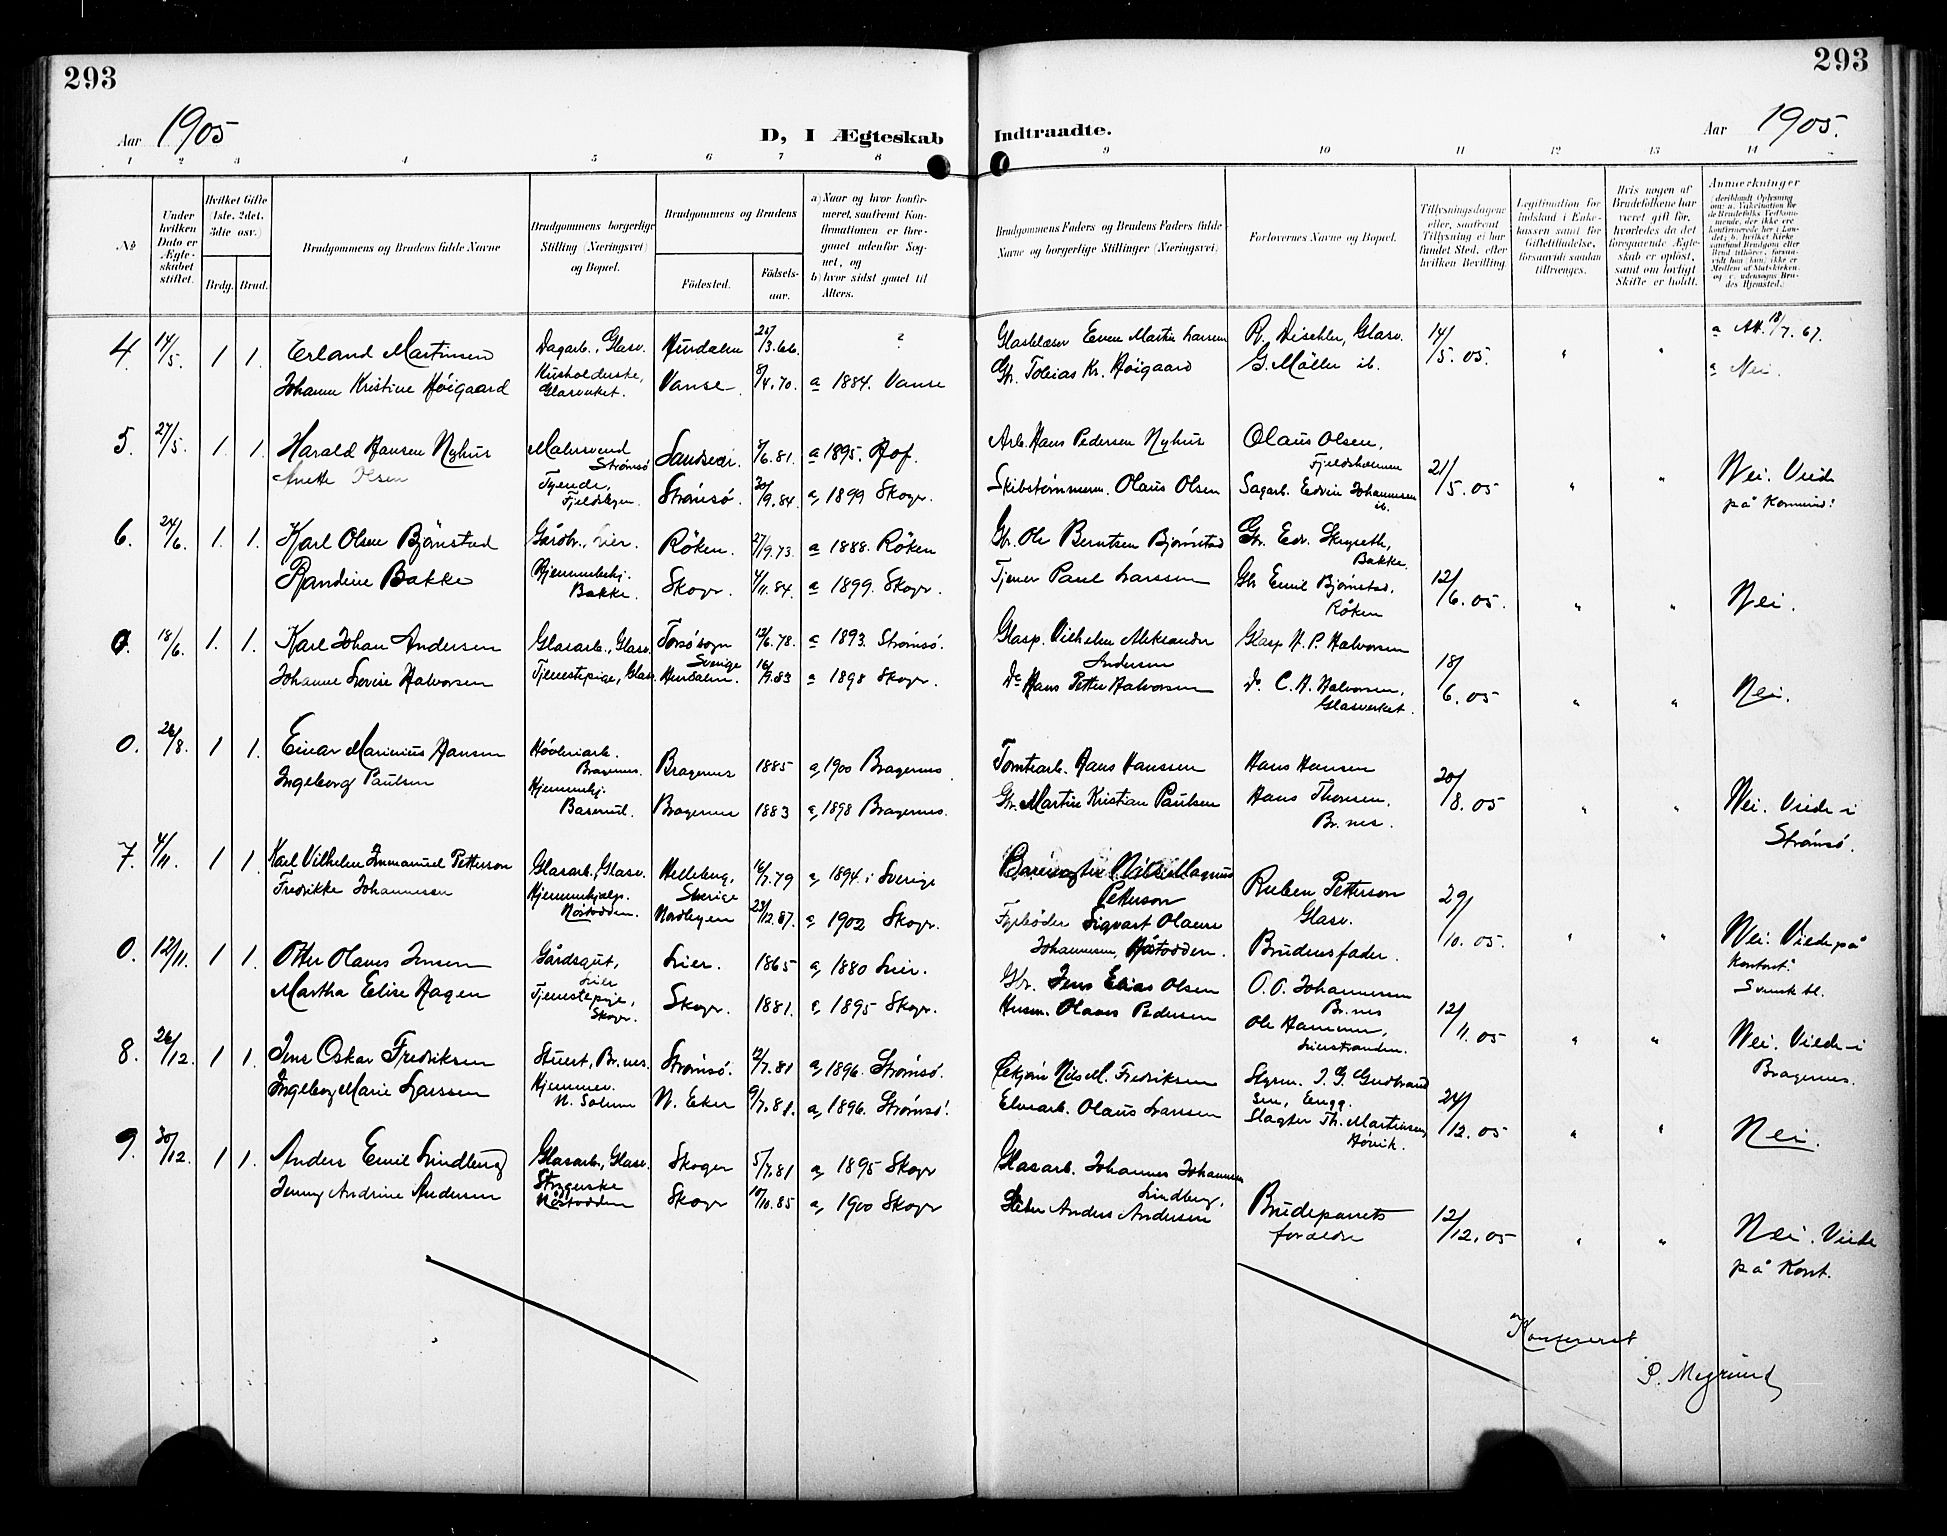 293
293
Aar 1905
D, I Ægteskab Indtraadte.
Aar 1905.
1 2 3 4 5 6 7 8 9 10 11 12 13 14
No
Under hvilken Dato er Ægteskabet stiftet.
Hvilket Gifte (1ste, 2det, 3die osv.)
Brdg. Brud.
Brudgommens og Brudens fulde Navne
Brudgommens borgerlige Stilling (Næringsvei) og Bopæl.
Brudgommens og Brudens
Fødested.
Fødselsaar.
a) Naar og hvor konfirmeret, saafremt Konfirmationen er foregaaet udenfor Sognet, og
b) hvor sidst gaaet til Alters.
Brudgommens Faders og Brudens Faders fulde Navne og borgerlige Stillinger (Næringsvei)
Forlovernes Navne og Bopæl.
Tillysningsdagene eller, saafremt Tillysning ei har fundet Sted, efter hvilken Bevilling.
Legitimation for Indskud i Enkekassen samt for Giftetilladelse, forsaavidt saadan tiltrænges.
Hvis nogen af Brudefolkene har været gift før, hvorledes da det foregaaende Ægteskab er opløst, samt om lovligt Skifte er holdt.
Anmerkninger
4. 14/5 1 1. Erland Martinsen Dagarb., Glasv. Hurdalen 26/3.66. ? Glasblæser Even Martin Larsen R. Dischler, Glasv. 14/5.05. " " a Att. 18/7.67.
Johanne Kristine Høigaard Husholderske, Glasverket. Vanse 8/4.70. a 1884. Vanse Gbr. Tobias Kr. Høigaard G. Møller ib. a Nei.
5. 27/5. 1. 1. Harald Hansen Nyhus Malersvend Strømsø Sandsvær. 7/6.81. a 1895. Hof. Arb. Hans Pedersen Nyhus Olaus Olsen, Fjeldsbyen 21/5.05 " "
Anette Olsen Tyende, Fjeldsbyen Strømsø. 30/9.84 a, 1899 Skoger. Skibstømmerm. Olaus Olsen Sagarb. Edvin Johannesen ib. Nei. Viede på
6. 24/6. 1. 1. Karl Olsen Bjørnstad Gårdbr., Lier. Røken. 27/9.73. a 1888. Røken Gbr. Ole Berntsen Bjørnstad Gbr. Edv. Bakke.
Randine Bakke Hjemmebehj. Bakke. Skogr. 4/11.84. a 1899. Skogr. Tjener Paul Larssen Gbr Emil Bjørnstad, Røken 12/6.05. " " Nei.
0. 18/6. 1. 1. Karl Johan Andersen Glasarb., Glasv. Torsö sogn Sverige 12/6.78. a 1893. Strømsø. Glasp. Vilhelm Aleksander Andersen Glasp H. P. Halvorsen 18/6.05 " " Nei.
Johanne Lovise Halvorsen Tjenestepige, Glasv. Hurdalen. 16/9.83 a 1898 Skogr. Do Hans Petter Halvorsen Do C. H. Halvorsen, Glasverket.
0. 26/8. 1 1. Einar Marinius Hansen Høvleriarb. Bragernes. Bragernes 1885 a, 1900 Bragernes. Tomtearb. Hans Hanssen Hans Hansen 20/8.05 " "
Ingeborg Paulsen Hjemmehj. Baserud. Bragernes 1883 a, 1898 Bragernes. Gbr. Martin Kristian Paulsen Hans Thoresen. Br.nes. Nei. Viede i Strømsø.
7. 4/11. 1 1. Karl Vilhelm Immanuel Petterson Glasarb., Glasv. Helleberg, Sverige 16/7.79 a, 1894 i Sverige Magnus Petterson Ruben Petterson Glasv. 29/10.05. " "
Fredrikke Johannesen Hjemmehjælp. Nøstodden. Nordbyen 23/12.87. a, 1902 Skogr. Fyrbøder Sigvart Olausen Johannesen, Nøstodden. Brudens fader. Nei. Viede på kontoret. Svensk bl.
0. 12/11. 1 1. Otter Olaves Jensen Gårdsgut, Lier Lier. 1865 a, 1880 Lier. Gbr. Jens Elias Olsen O. O. Johannessen Br.nes 12/11.05 " "
Martha Elise Hagen Tjenestepige, Skogr. Skogr. 1881. a, 1895 Skogr. Husm. Olaves Pedersen Ole Hansen, Lierstranden. Nei. Viede i Bragernes.
8. 26/12. 1 1. Jens Oskar Fredriksen Stuert, Br.nes. Strømsø. 12/7.81 a, 1896. Strømsø. Nils M. Fredriksen Styrm. J. G. Gudbrandsen, Engg. 24/12.05 " " Nei.
Ingeborg Marie Larssen Hjemmev. N. Solum N. Eker 9/7.81. a, 1896. Strømsø. Elvearb. Olaus Larssen Slagter Th. Martinsen, Høvik.
9. 30/12. 1 1. Anders Emil Lindberg Glasarb., Glasv. Skoger 5/7.81 a, 1895 Skogr Glasarb. Johannes Johannesen Lindberg. Brudeparrets forældre 12/12.05 " "
Jenny Andrine Andersen Strygerske Nøstodden Skogr 10/10.85 a, 1900 Skogr Anders Andersen Nei. Viede på Kont.
Konfereret
P. Megrund